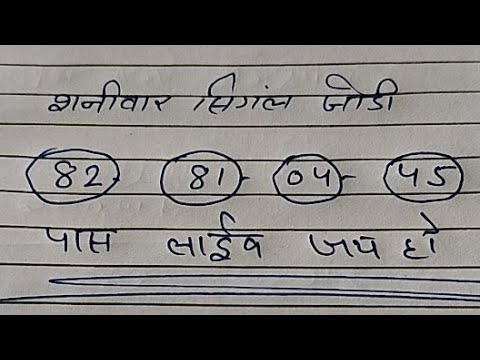 शनीवार सिगंल जोडी
82 - 81 - 04 - 45
पास लाईव जय हो